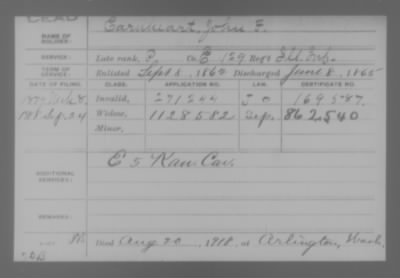 DEAD
NAME OF SOLDIER: Earnheart, John F.
SERVICE: Late rank, P, Co. E 129 Reg't Ill. Inf.
TERM OF SERVICE: Enlisted Sept 8, 1862 Discharged June 8, 1865
DATE OF FILING. CLASS. APPLICATION NO. LAW. CERTIFICATE NO.
Invalid, 271244 169587
1918 Sep. 24 Widow, 1128582 862540
Minor,
ADDITIONAL SERVICES: E 5 Kan Cav.
REMARKS:
Died Aug 20, 1918, at Arlington, Wash.